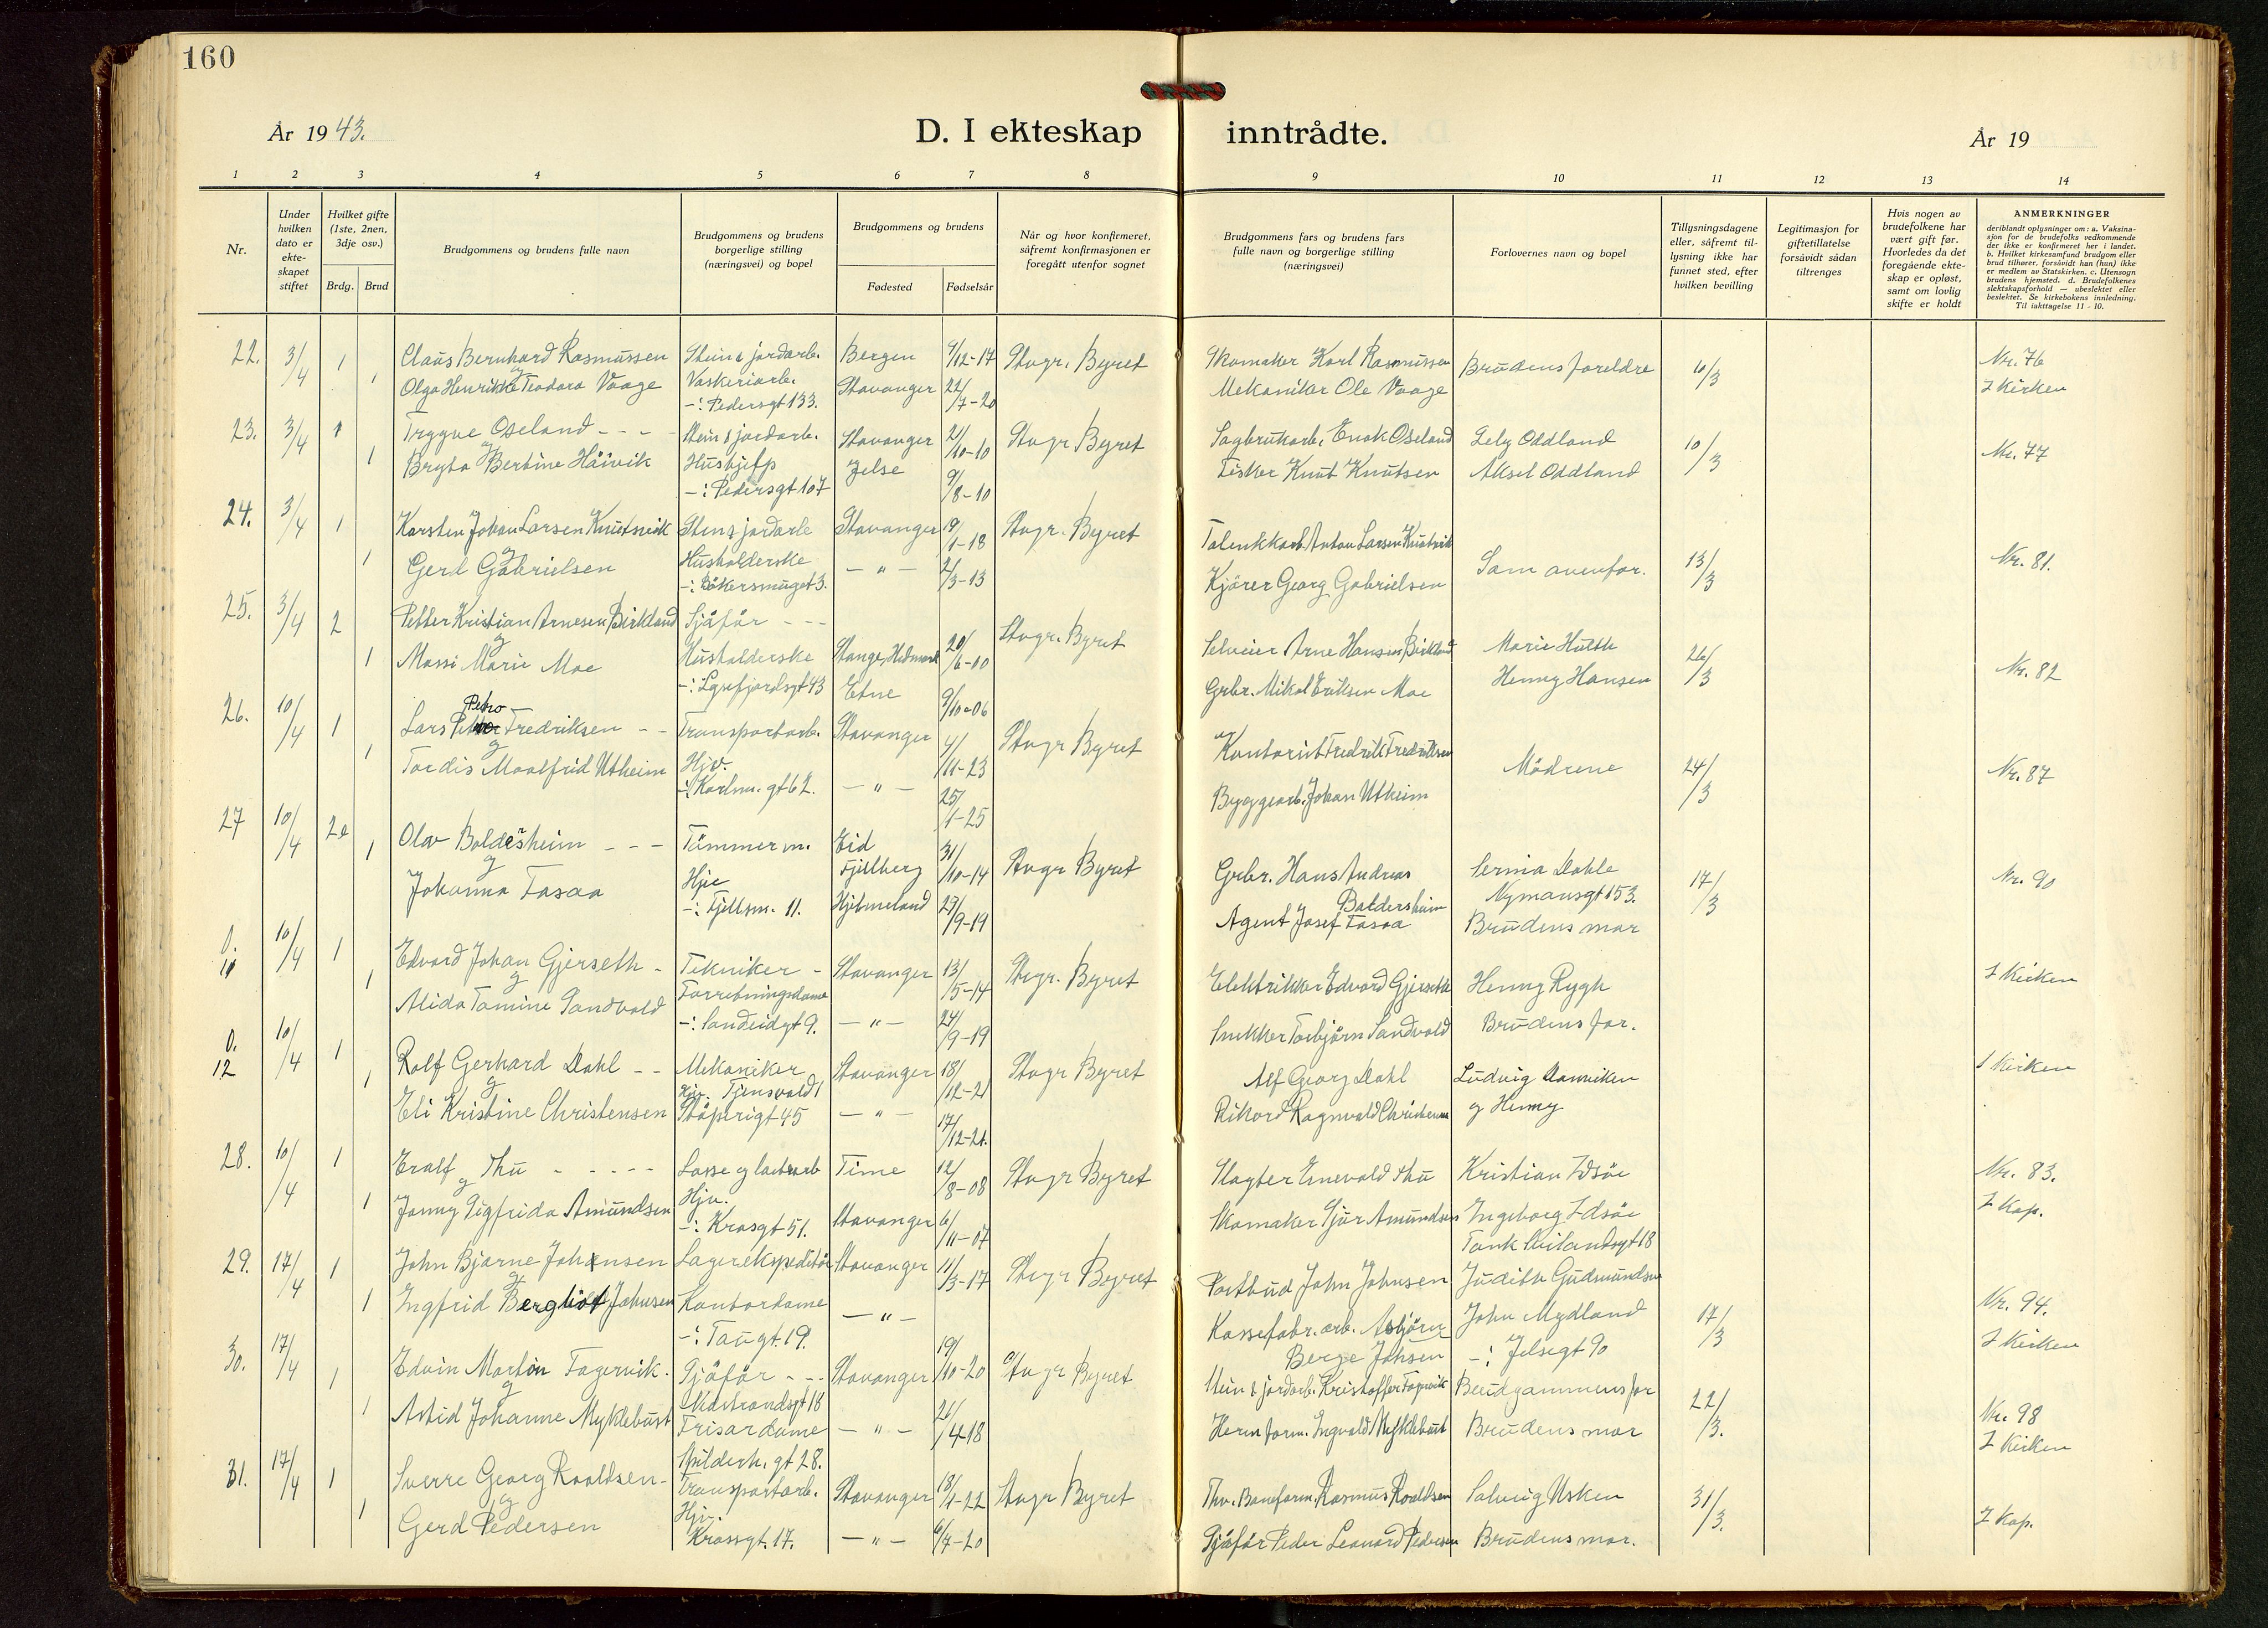 160
År 1943.
D. I ekteskap inntrådte.
År 19
1 2 3 4 5 6 7 8 9 10 11 12 13 14
Nr.
Under hvilken dato er ekte- skapet stiftet
Hvilket gifte (1ste, 2nen, 3dje osv.)
Brdg. Brud
Brudgommens og brudens fulle navn
Brudgommens og brudens borgerlige stilling (næringsvei) og bopel
Brudgommens og brudens
Fødested Fødselsår
Når og hvor konfirmeret, såfremt konfirmasjonen er foregått utenfor sognet
Brudgommens fars og brudens fars fulle navn og borgerlige stilling (næringsvei)
Forlovernes navn og bopel
Tillysningsdagene eller, såfremt til- lysning ikke har funnet sted, efter hvilken bevilling
Legitimasjon for giftetillatelse forsåvidt sådan tiltrenges
Hvis nogen av brudefolkene har vært gift før. Hvorledes da det foregående ekte- skap er opløst, samt om lovlig skifte er holdt
ANMERKNINGER
deriblandt oplysninger om: a. Vaksina- sjon for de brudefolks vedkommende der ikke er konfirmeret her i landet. b. Hvilket kirkesamfund brudgom eller brud tilhører, forsåvidt han (hun) ikke er medlem av Statskirken. c. Utensogn brudens hjemsted. d. Brudefolkenes slektskapsforhold — ubeslektet eller beslektet. Se kirkebokens innledning. Til iakttagelse 11 - 10.
22. 3/4 1 Claus Bernhard Rasmussen Stein & jordarb. Bergen 9/12-17 Stvgr. Byret Skomaker Karl Rasmussen Brudens foreldre 10/3 Nr. 76
og
1 Olga Henrikke Teodora Vaage Vaskeriarb. Stavanger 22/7-20 Mekaniker Ole Vaage I Kirken
-: Pedersgt 133.
23. 3/4 1 Trygve Oseland - - - Stein & jordarb. Stavanger 2/10-10 Stvgr Byret Sagbrukarb. Enok Oseland Lely Oddland 10/3 Nr. 77
og
1 Bryta Bertine Håivik Hushjelp Jelse 9/8-10 Fisker Knut Knutsen Aksel Oddland
-: Pedersgt 107
24. 3/4 1 Karsten Johan Larsen Knutsvik Sten & jordarb Stavanger 19/1-18 Stvgr. Byret Anton Larsen Knutsvik Som ovenfor. 13/3 Nr. 81.
og
1 Gerd Gabrielsen Husholderske — " — 2/3-13 Kjörer Georg Gabrielsen
-: Bökersmuget 3.
25. 3/4 2 Petter Kristian Arnesen Birkland Sjöför - - - Stange, Hedmark 20/6-00 Stvgr. Byret Arne Hansen Birkland Marie Huth 26/3 Nr. 82
og
1 Massi Marie Moe Husholderske Etne 9/10-06 Grbr. Mikal Eriksen Moe Henny Hansen
-: Lysefjordsgt 43
26. 10/4 1 Lars Petro Fredriksen - - Transportarb. Stavanger 4/11-23 Stvgr Byret Kontorist Fredrik Fredriksen Mödrene 24/3 Nr. 87
og
1 Tordis Maalfrid Utheim Hjv. — " — 25/1-25 Byggearb. Johan Utheim
-: Karlm. gt 62.
27 10/4 2 Olav Boldesheim - - - Tömmerm. Eid 31/10-14 Stvgr Byret Grbr. Hans Andreas Serina Dahle 17/3 Nr. 90
og Fjellberg Baldersheim Nymansgt 153.
1 Johanna Fasaa Hje Hjelmeland 23/9-19 Agent Josef Fasaa Brudens mor
-: Fjellsm. 11.
0. 10 10/4 1 Edvard Johan Gjerseth - Tekniker - Stavanger 13/5-14 Stvgr. Byret Elektrikker Edvard Gjerseth Henny Rygh I Kirken
og
1 Alida Tomine Sandvold Forretningsdame — " — 24/9-19 Snekker Torbjörn Sandvold Brudens far.
-: Sandeidgt 9.
0. 12 10/4 1 Rolf Gerhard Dahl - - Mekaniker Stavanger 18/12-21 Stvgr Byret Alf Georg Dahl Ludvig Danniken I Kirken
og Hjv. Tjensvold 1
1 Eli Kristine Christensen Støperigt 45 — " — 17/12-21. Rikard Ragnvald Christensen og Henny
28. 10/4 1 Eralf Thu - - - - - Losse og lastearb Time 12/8-08 Stvgr Byret Slagter Enevald Thu Kristian Idsöe Nr. 83.
og
1 Jenny Sigfrida Amundsen Hjv. Stavanger 6/11-07 Skomaker Sjur Amundsen Ingeborg Idsöe I Kap.
-: Krosgt 51. Tank Svilandsgt 18
29. 17/4 1 John Bjarne Johansen Lagerekspeditör Stavanger 11/3-17 Stvgr Byret Postbud John Johnsen Judith Gudmundsen 17/3 Nr. 94.
og
1 Ingfrid Bergliot Johnsen Kontordame — " — 19/10-20 Kassefabr. arb. Asbjörn John Mydland I Kirken
-: Taugt. 19. Berge Johsen -: Jelsegt 90
30. 17/4 1 Edvin Martin Fagervik. Sjöför - - - Stavanger Stvgr Byret Stein & jordarb. Kristoffer Fagervik Brudgommens far 22/3. Nr. 98
og Midtrandsgt 18
1 Astid Johanne Myklebust Frisördame — " — 26/4-18 Herm form. Ingvald Myklebust Brudens mor I Kirken
gt 28.
31. 17/4 1 Sverre Georg Roaldsen - Transportarb. Stavanger 18/1-22 Stvgr Byret Rasmus Roaldsen Solveig Usken 31/3.
og
1 Gerd Pedersen Hjv. — " — 6/7-20 Sjöför Peder Leonard Pedersen Brudens mor. I Kap.
Krossgt. 17.